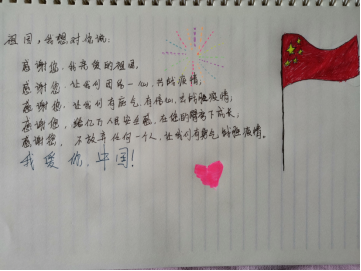 祖国,我想对您说:
感谢您,我亲爱的祖国,
感谢您,让我们团结一心,共战疫情;
感谢您,让我们有勇气,有信心,去战胜疫情;
感谢您,给亿万人民安全感,在您的臂弯下成长;
感谢您,不放弃任何一个人,让我们有勇气战胜疫情。
我爱你,中国!